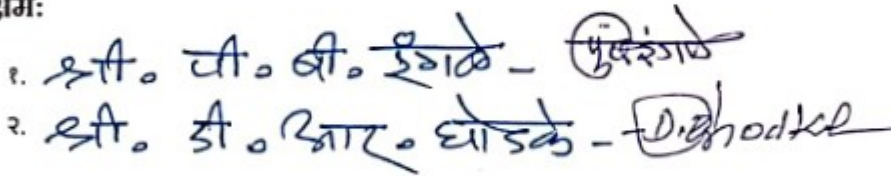 १. श्री. पी. बी. इंगळे -
२. श्री. डी. आर. घोडके - D. Ghodke